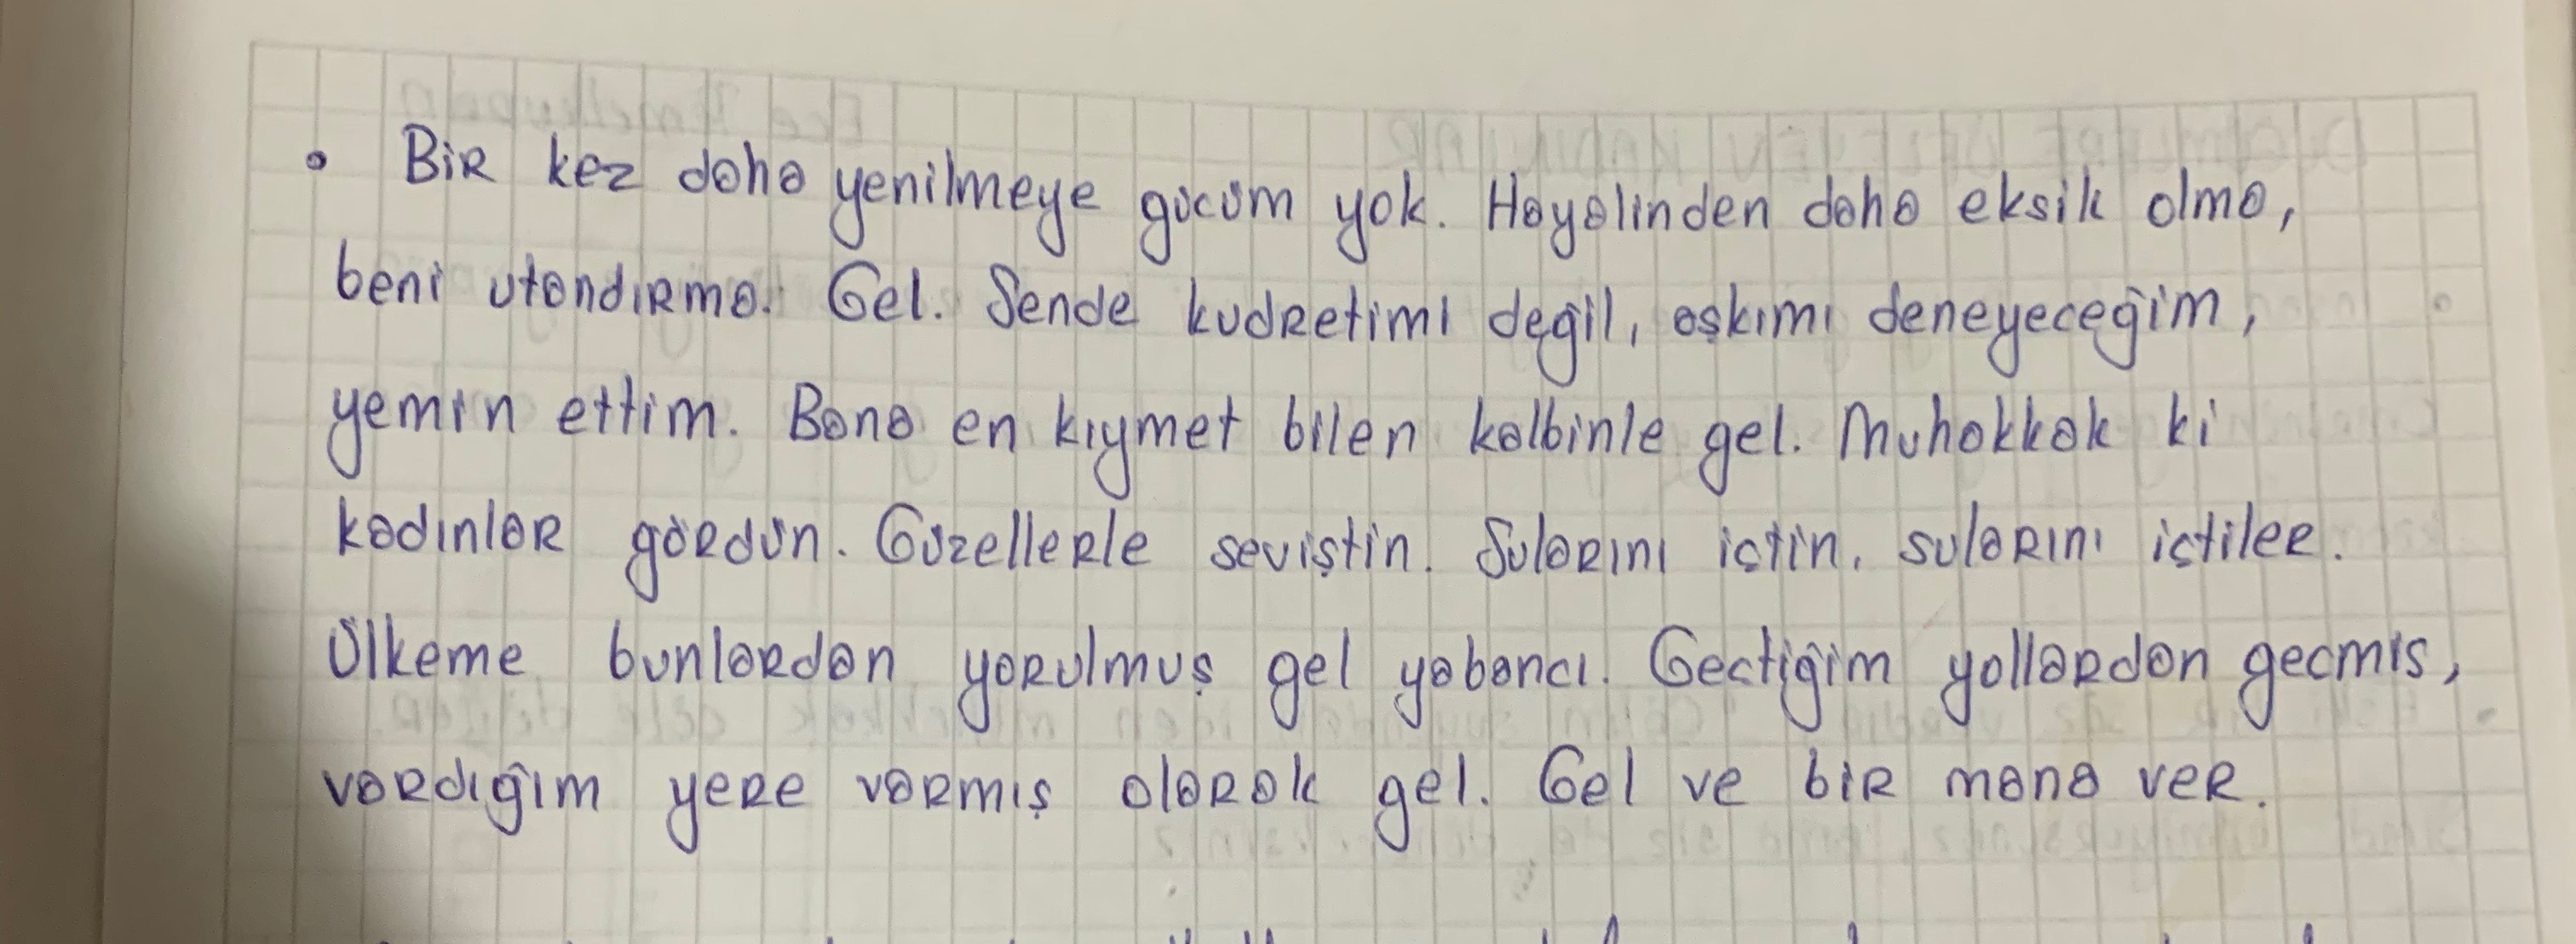 • Bir kez daha yenilmeye gücüm yok. Hayalinden daha eksik olma,
beni utandırma. Gel. Sende kudretimi değil, aşkımı deneyeceğim,
yemin ettim. Bana en kıymet bilen kalbinle gel. Muhakkak ki
kadınlar gördün. Güzellerle seviştin. Sularını içtin, sularını içtiler.
Ülkeme bunlardan yorulmuş gel yabancı. Gectiğim yollardan gecmis,
vardığım yere varmış olarak gel. Gel ve bir mana ver.